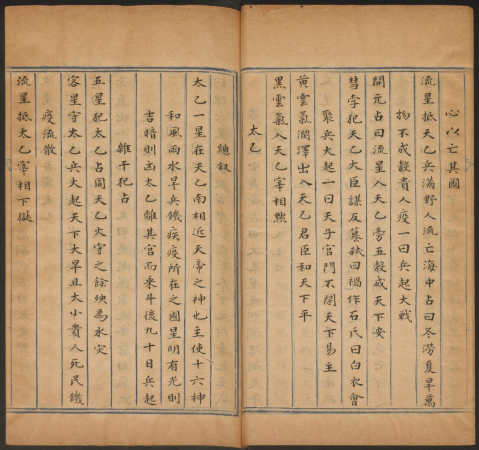 心以亡其國
流星抵天乙兵滿野人流亡海中占曰冬澇夏旱萬
物不成穀貴人疫一曰兵起大戰
開元占曰流星入天乙旁五穀成天下安
彗孛犯天乙大臣謀反篡弒曰禍作石氏曰白衣會
聚兵大起一曰天子宮門不閉天下易主
黃雲氣潤澤出入天乙君臣和天下平
黑雲氣入天乙宰相黜
太乙
總叙
太乙一星在天乙南相近天帝之神也主使十六神
和風雨水旱兵饑疾疫所在之國星明有光則
吉暗則凶太乙離其宮而乘斗後九十日兵起
雜干犯占
五星犯太乙占同天乙火守之餘殃為水灾
客星守太乙兵大起天下大旱且太小貴人死民饑
疫流散
流星抵太乙宰相下獄